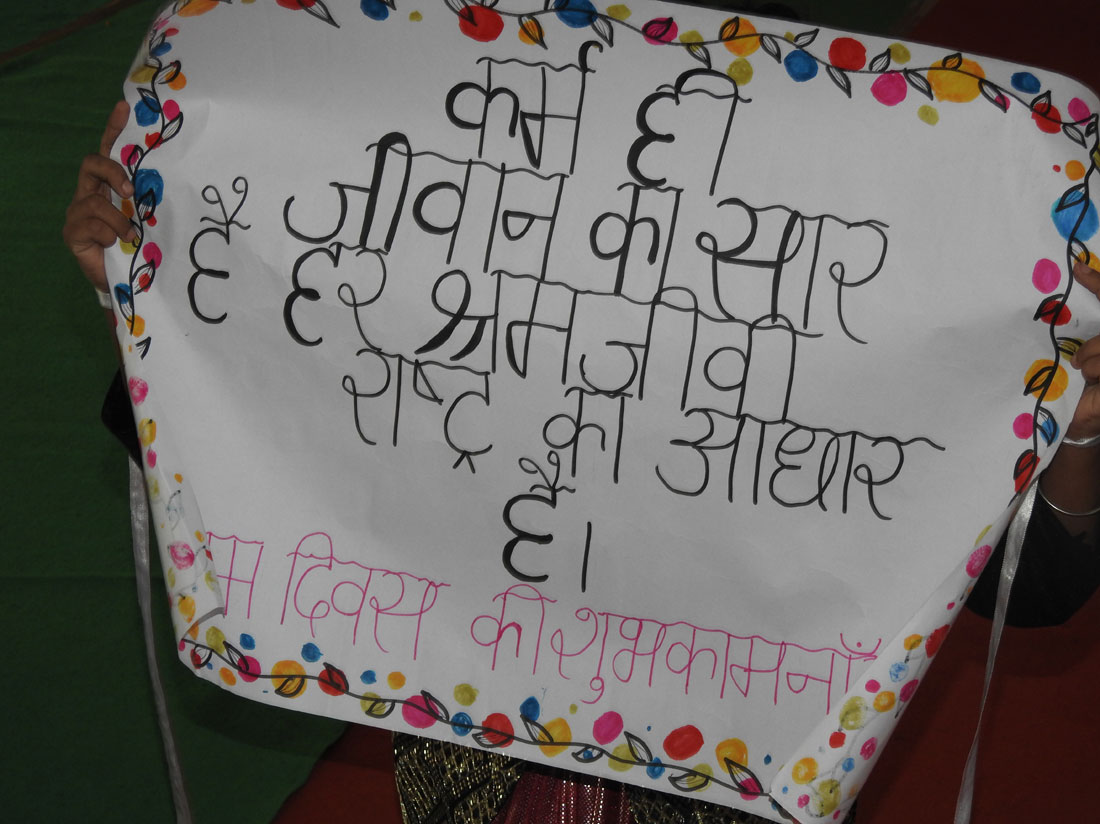 कर्म ही
जीवन का सार
है हर श्रमजीवी
राष्ट्र का आधार
है।
दिवस की शुभकामनाएँ